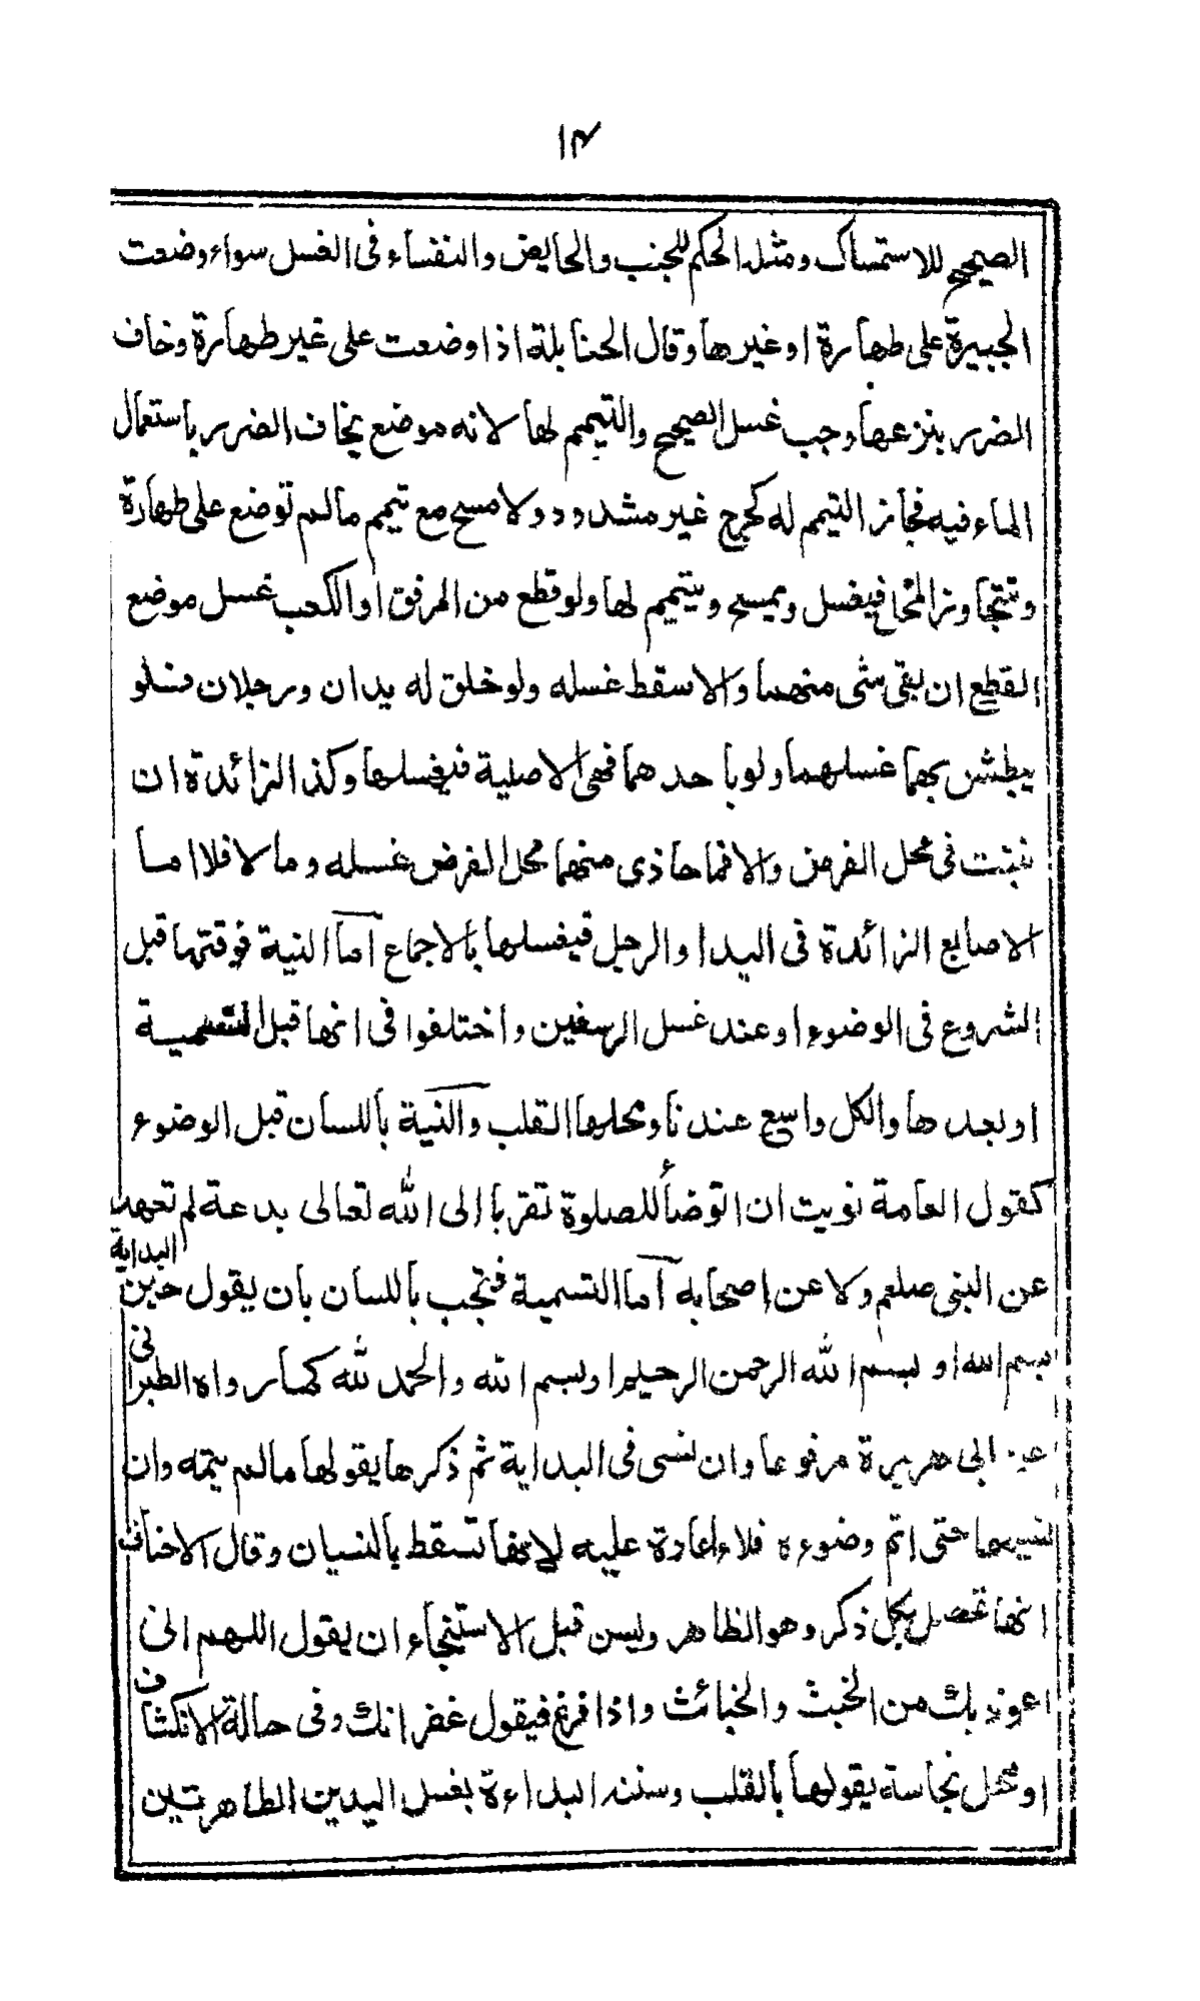 ١٣
الصحيح للاستمساك ومثله الحكم للجنب والحايض والنفساء فى الغسل سواء وضعت
الجبيرة على طهارة او غيرها وقال الحنابلة اذا وضعت على غير طهارة وخاف
الضرر بنزعها وجب غسل الصحيح والتيمم لها لانه موضع يخاف الضرر باستعمال
الماء فيه فجاز التيمم له كجرح غير مشدود ولا مسح مع تيمم مالم توضع على طهارة
وتتجاوز المحل فيغسل ويمسح ويتيمم لها ولو قطع من المرفق او الكعب غسل موضع
القطع ان بقى شى منهما والا سقط غسله ولو خلق له يدان ورجلان فلو
يبطش بهما غسلهما ولو باحدهما فهى الاصلية فيغسلها وكذا الزائدة ان
نبتت فى محل الفرض والا فما حاذى منهما محل الفرض غسله وما لا فلا اما
الاصابع الزائدة فى اليد او الرجل فيغسلها بالاجماع اما النية فوقتها قبل
الشروع فى الوضوء او عند غسل الرسغين واختلفوا فى انها قبل التسمية
او بعدها والكل واسع عندنا ومحلها القلب والنية باللسان قبل الوضوء
كقول العامة نويت ان اتوضأ للصلوة تقربا الى الله تعالى بدعة لم تعهد
عن النبى صلعم ولا عن اصحابه اما التسمية فتجب باللسان بان يقول حين البداية
بسم الله او بسم الله الرحمن الرحيم او بسم الله والحمد لله كما رواه الطبرانى
عن ابى هريرة مرفوعا وان نسى فى البداية ثم ذكرها يقولها مالم يتمه وان
نسيها حتى اتم وضوءه فلا اعادة عليه لانها تسقط بالنسيان وقال الاحناف
انها تحصل بكل ذكر وهو الظاهر ويسن قبل الاستنجاء ان يقول اللهم انى
اعوذ بك من الخبث والخبائث واذا فرغ فيقول غفرانك وفى حالة الانكشاف
او محل نجاسة يقولها بالقلب وسننه البداءة بغسل اليدين الطاهرتين